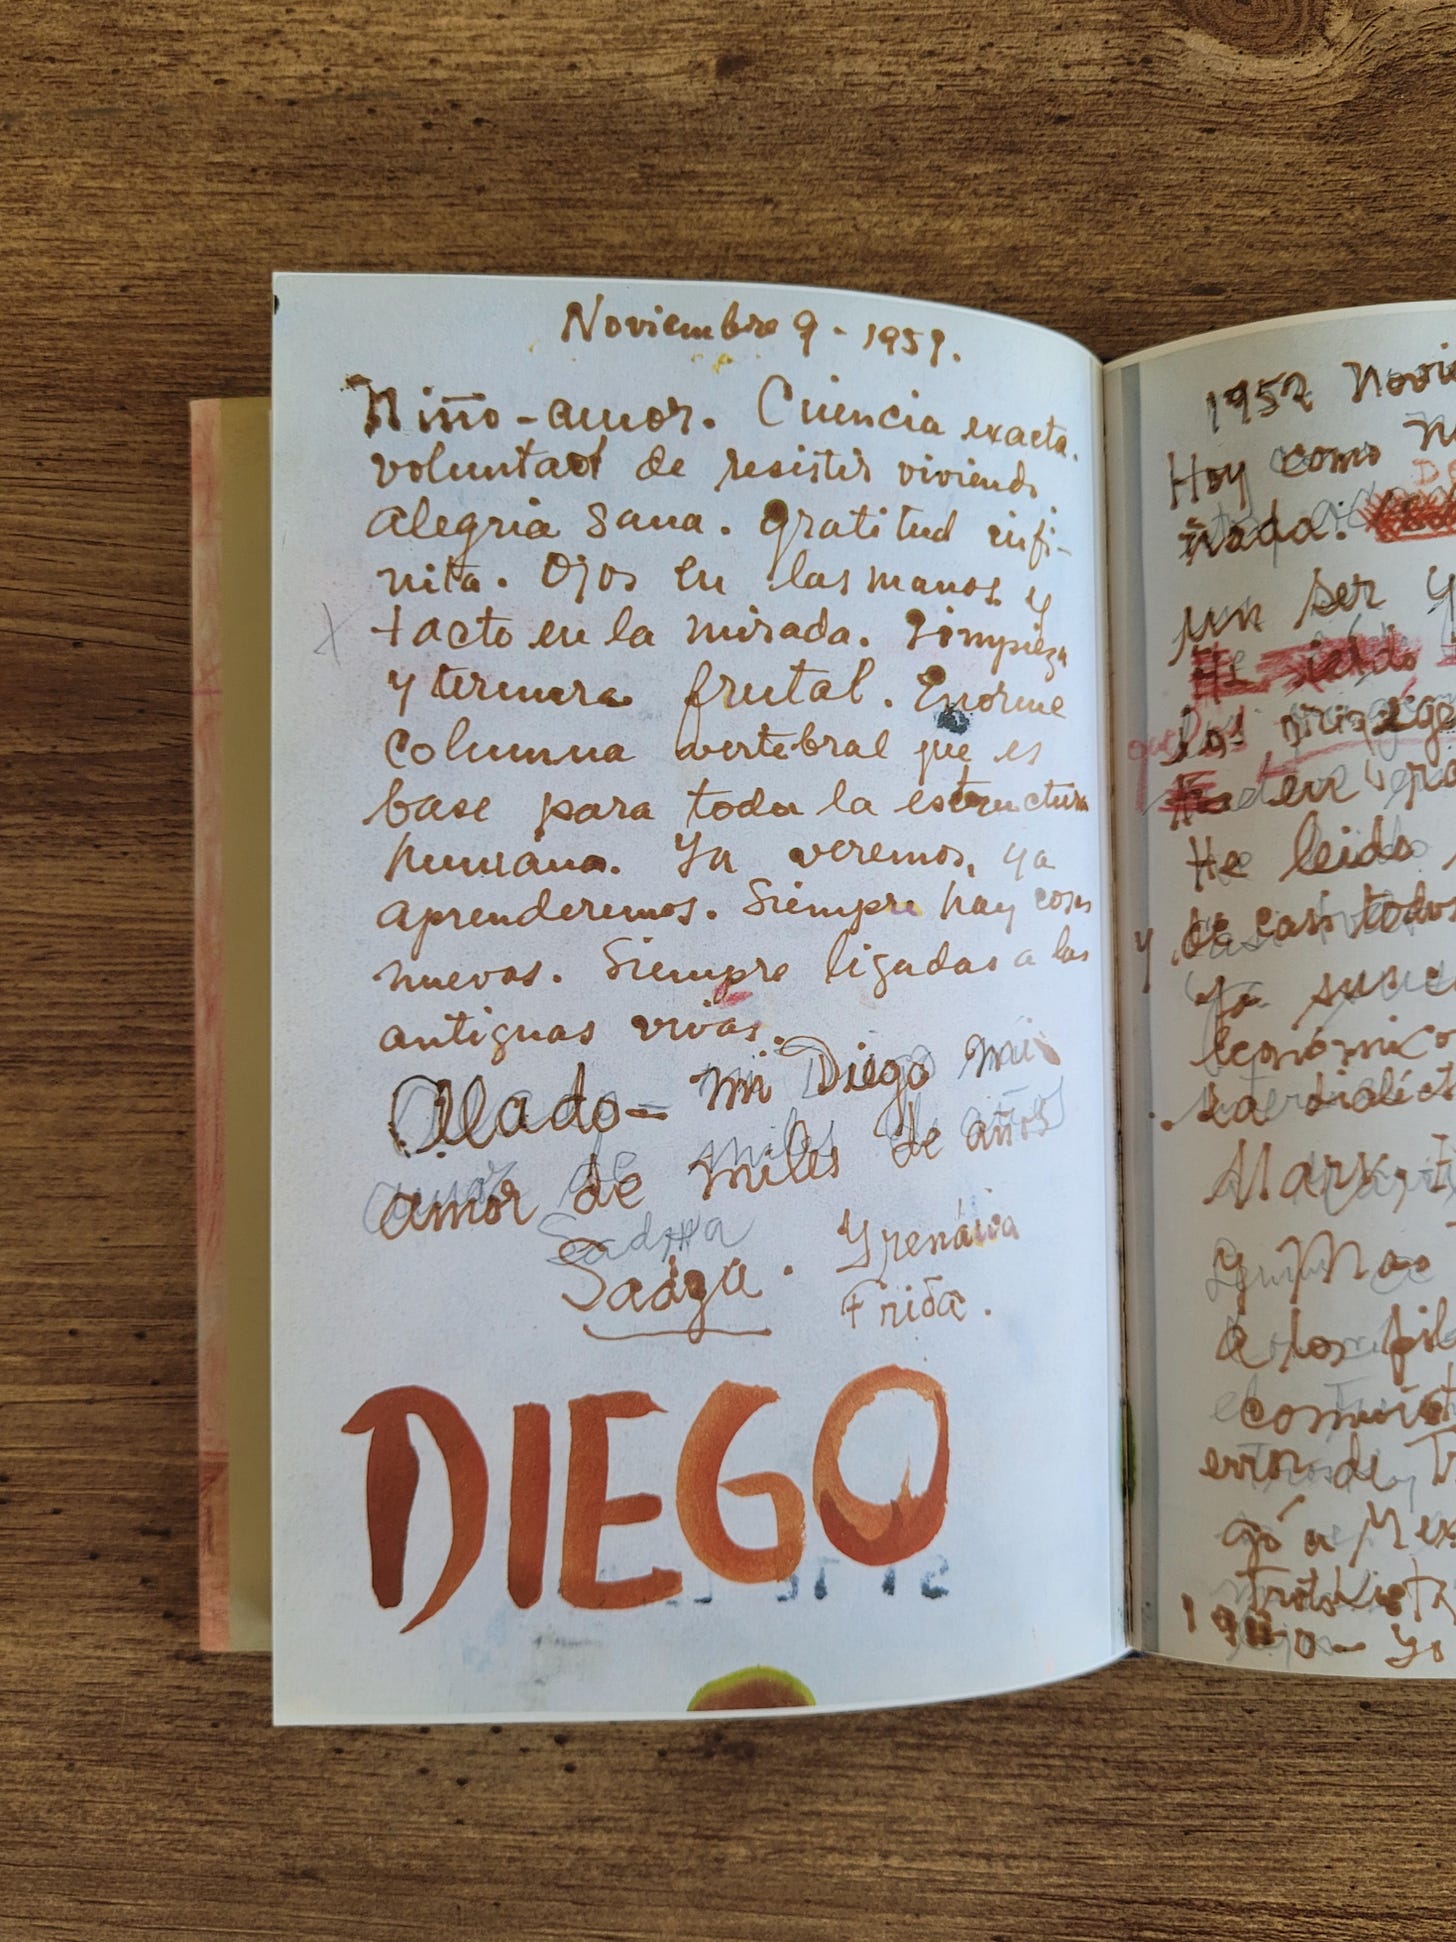 Noviembre 9 - 1951.
Niño-amor. Ciencia exacta.
voluntad de resistir viviendo
alegria sana. gratitud infi-
nita. Ojos en las manos y
tacto en la mirada. Limpieza
y ternura frutal. Enorme
columna vertebral que es
base para toda la estructura
humana. Ya veremos, ya
aprenderemos. Siempre hay cosas
nuevas. Siempre ligadas a las
antiguas vivas.
Alado- mi Diego mi
amor de miles de años
Sadga. Yrenáica
Frida.
DIEGO
1952 Novie
Hoy como
nada.
un ser
He sido
los
He leido
y de casi todos
Ya
económico
la dialéct
Marx, E
y Mao
a los
comunist
error de T
gó a Mex
trotskist
1940- Yo